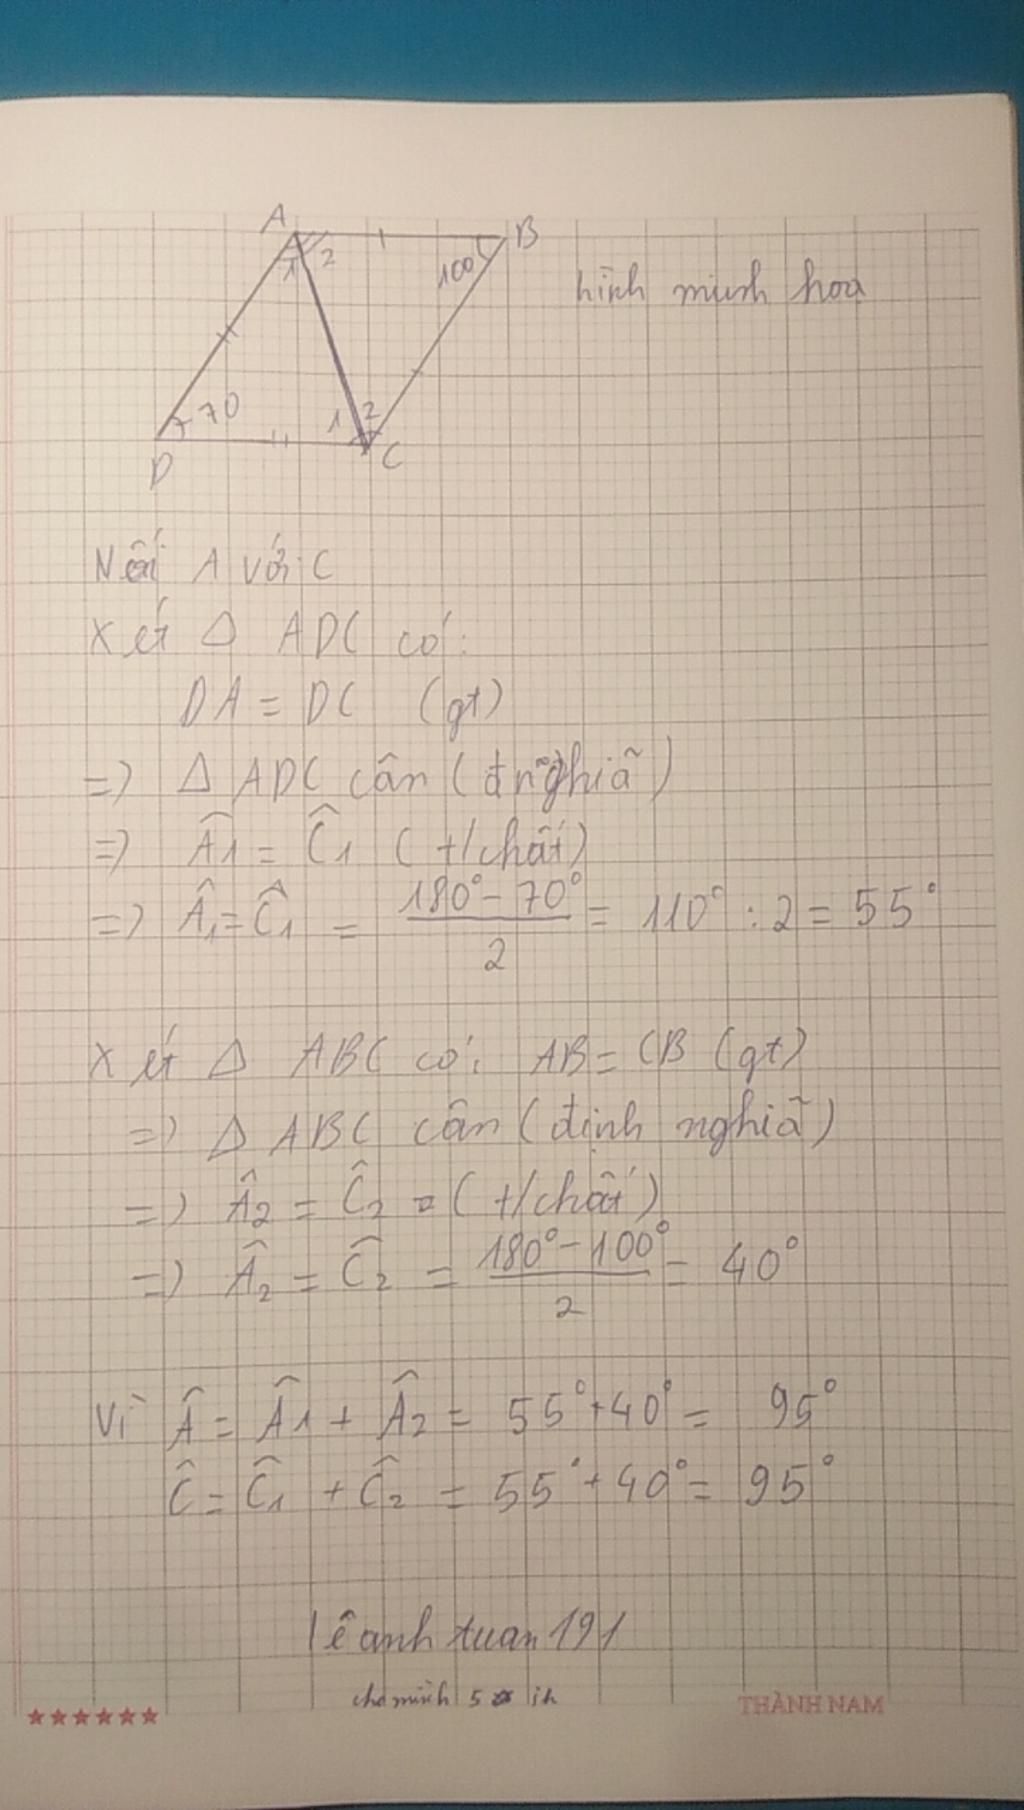 A
B
1 2
100
hình minh hoa
70
1 2
D
C
Nối A với C
Xét Δ ADC có:
DA = DC (gt)
=) Δ ADC cân (đnghiã)
=) Â1 = Ĉ1 (t/chất)
=) Â1 = Ĉ1 = (180° - 70°)/2 = 110° : 2 = 55°
Xét Δ ABC có: AB = CB (gt)
=) Δ ABC cân (định nghiã)
=) Â2 = Ĉ2 = (t/chất)
=) Â2 = Ĉ2 = (180° - 100°)/2 = 40°
Vì Â = Â1 + Â2 = 55° + 40° = 95°
Ĉ = Ĉ1 + Ĉ2 = 55° + 40° = 95°
lê anh tuan 191
cho mình 5 lik
THÀNH NAM